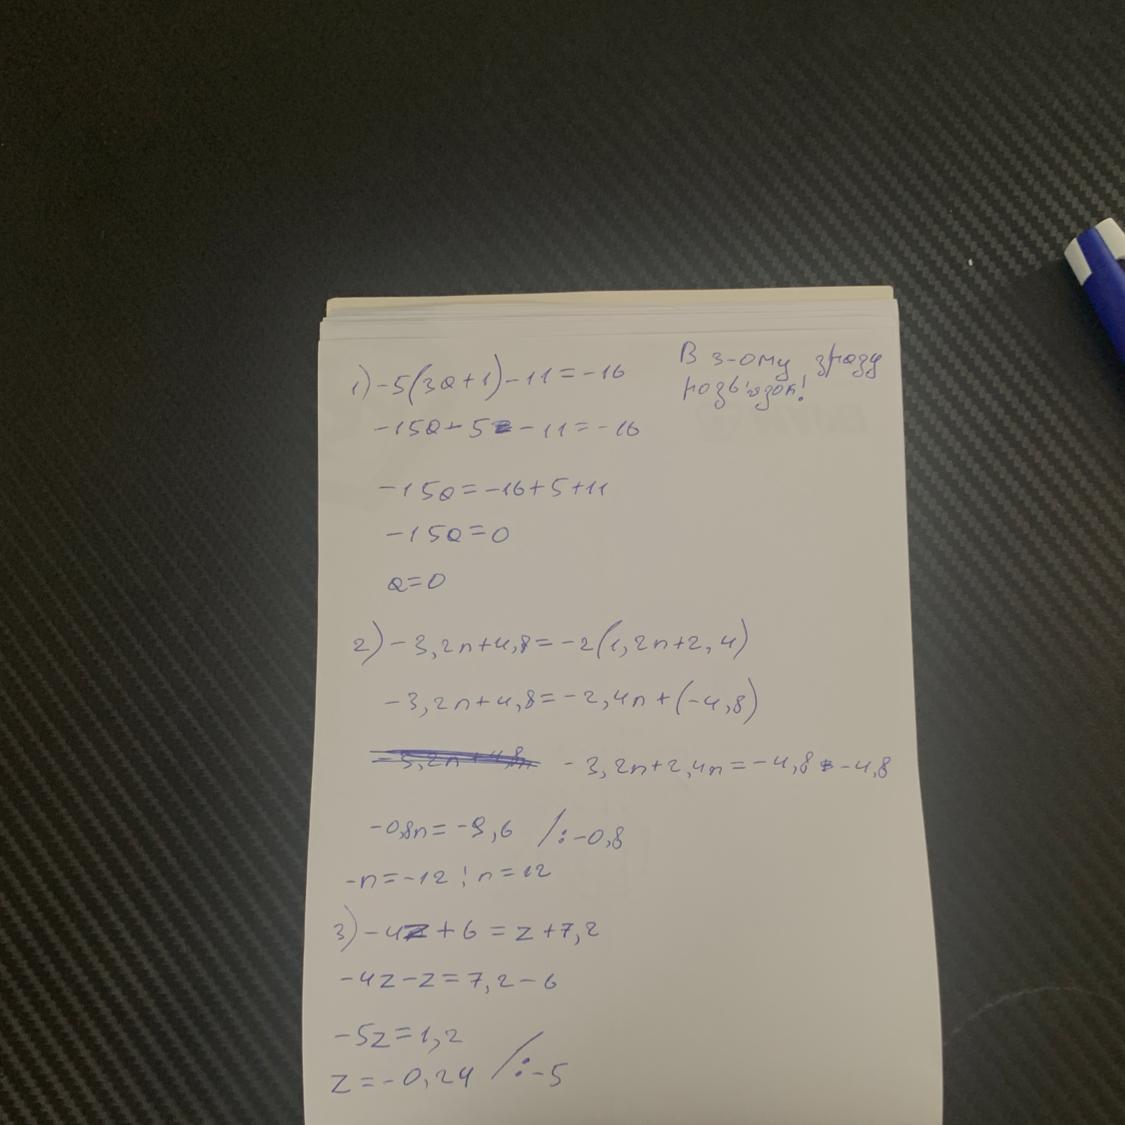 1) -5(3a+1)-11=-16
В 3-ому, зразу
розв'язок!
-15a-5-11=-16
-15a=-16+5+11
-15a=0
a=0
2) -3,2n+4,8=-2(1,2n+2,4)
-3,2n+4,8=-2,4n+(-4,8)
-3,2n+2,4n=-4,8-4,8
-0,8n=-9,6 /:-0,8
-n=-12; n=12
3) -4z+6=z+7,2
-4z-z=7,2-6
-5z=1,2
z=-0,24 /:-5